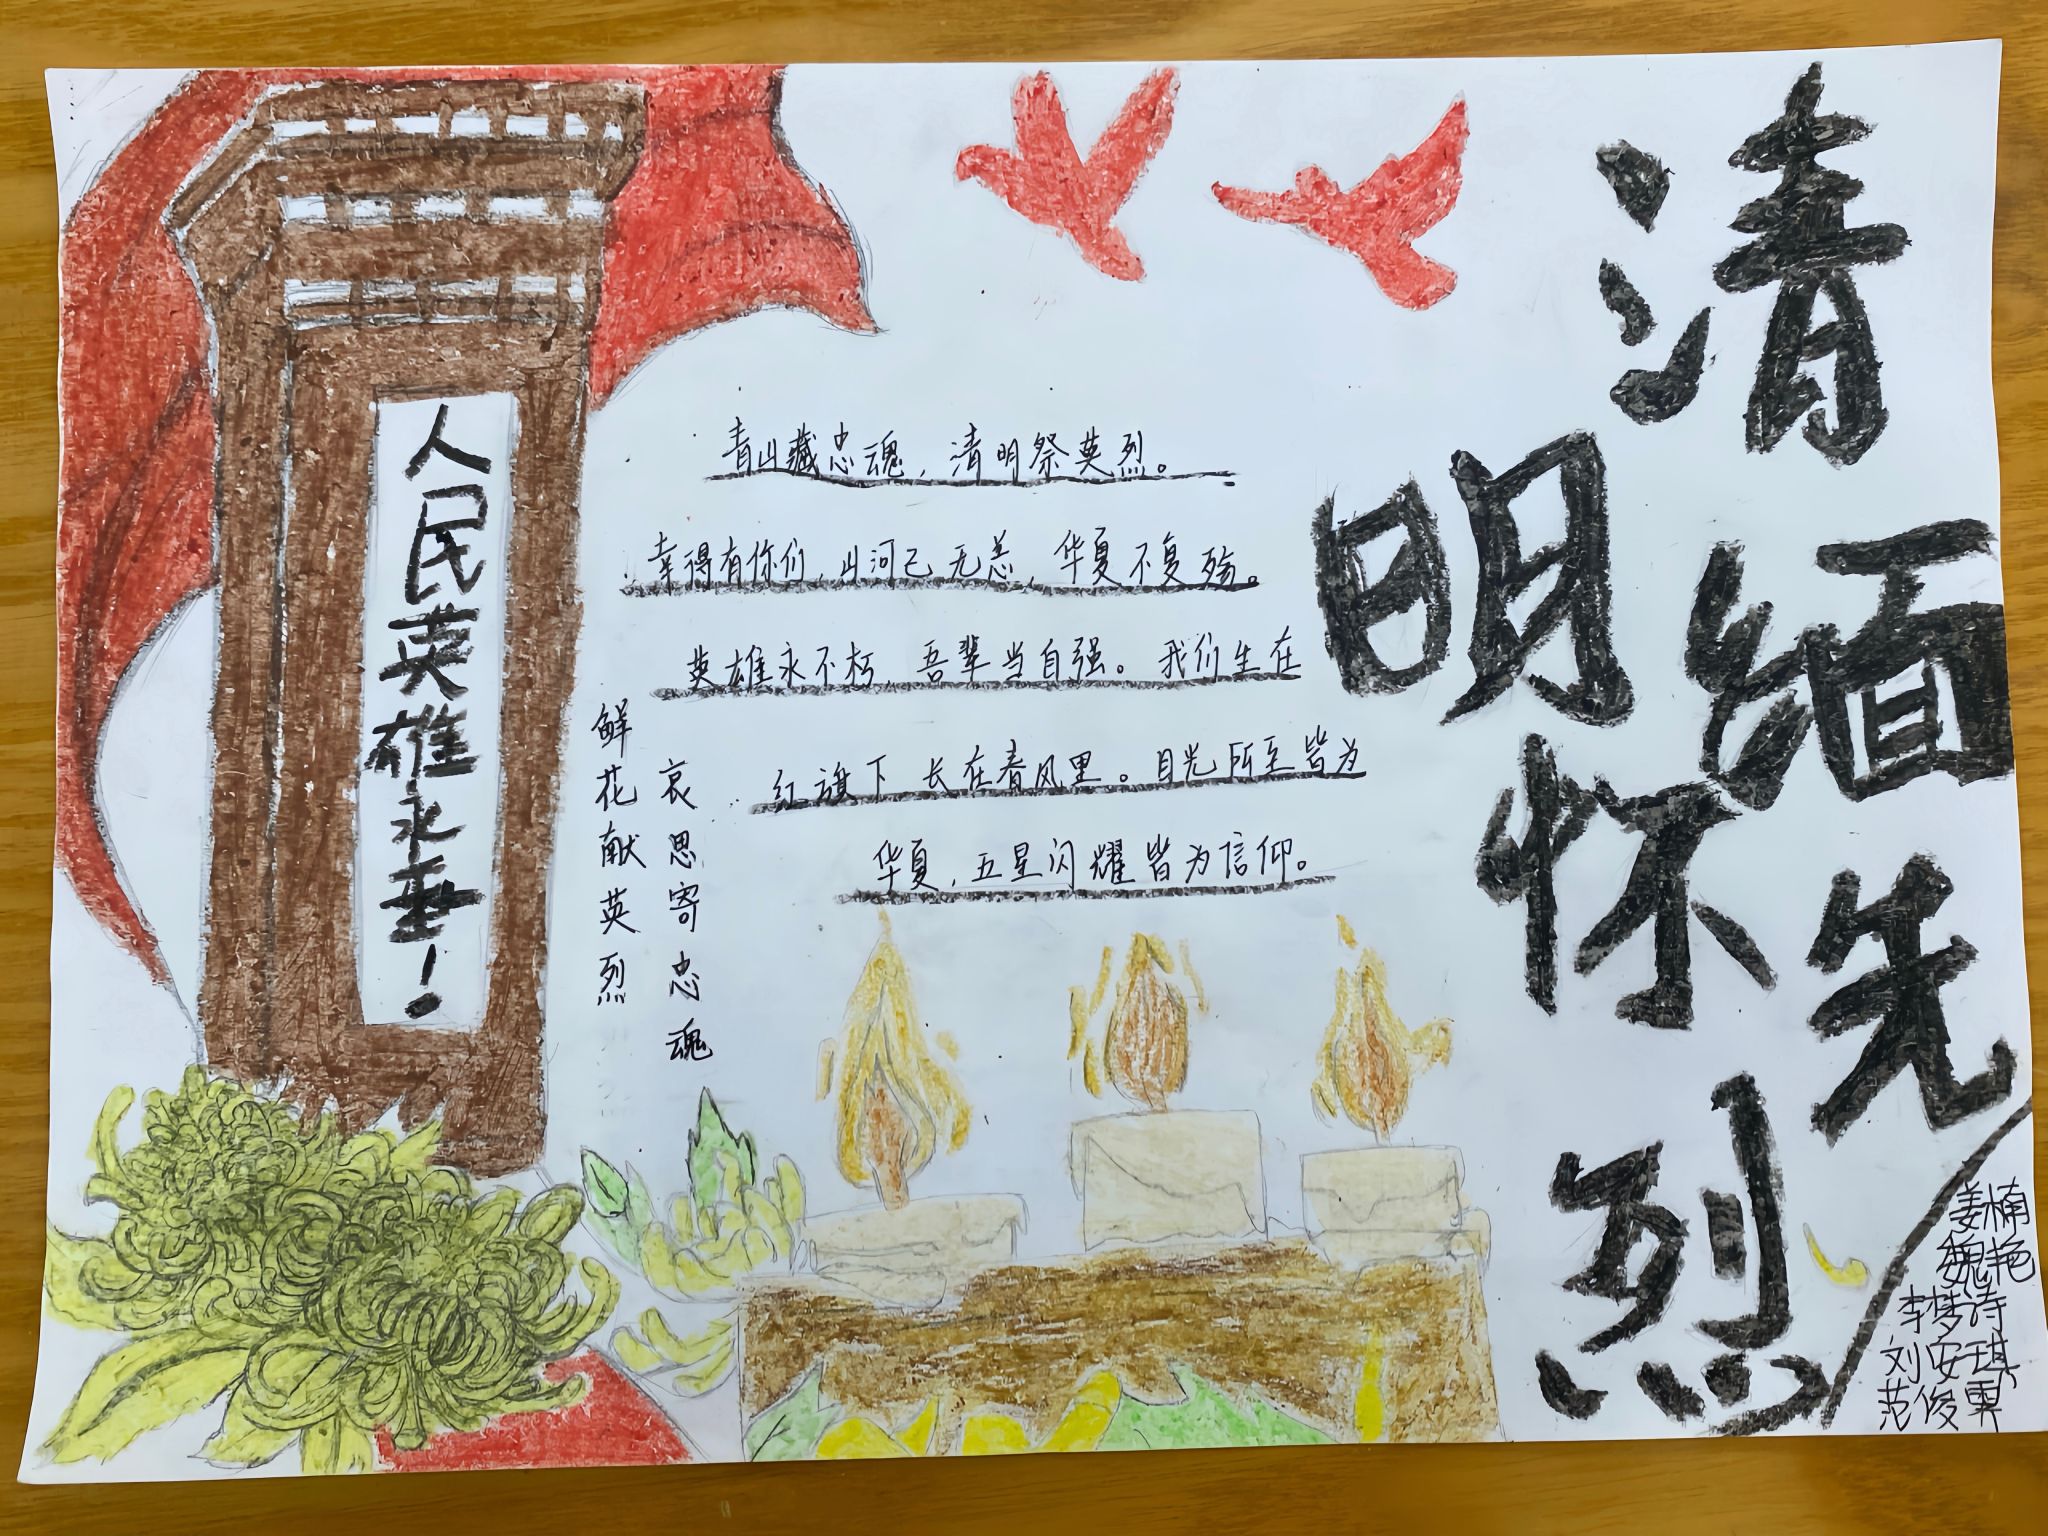 清明缅怀先烈
人民英雄永垂!
青山藏忠魂，清明祭英烈。
幸得有你们，山河已无恙，华夏不复殇。
英雄永不朽，吾辈当自强。我们生在
红旗下 长在春风里。目光所至皆为
华夏，五星闪耀皆为信仰。
鲜花献英烈
哀思寄忠魂
姜楠
魏艳
李梦诗
刘安琪
范俊